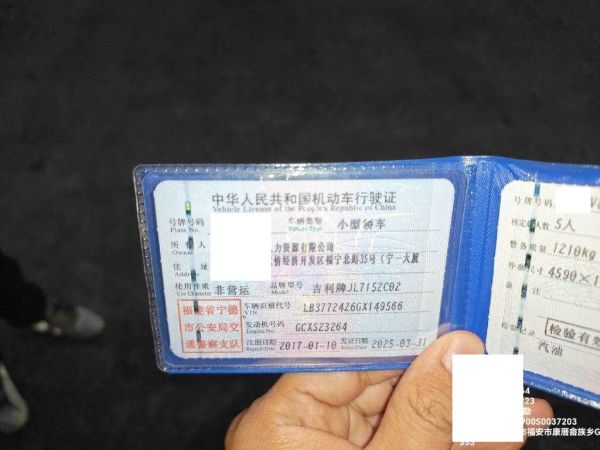 中华人民共和国机动车行驶证
Vehicle License of the People's Republic of China
号牌号码
Plate No.
车辆类型
Vehicle Type
小型轿车
所有人
Owner
力资源有限公司
住址
Address
侨经济开发区福宁北路35号(宁一大厦
使用性质
Use Character
非营运
品牌型号
Model
吉利牌JL7152C02
福建省宁德
市公安局交
通警察支队
车辆识别代号
VIN
LB37724Z6GX149566
发动机号码
Engine No.
GCXS23264
注册日期
Register Date
2017-01-10
发证日期
Issue Date
2025-03-31
号牌号码
核定载人数
5人
整备质量
1210kg
外廓尺寸
4590×1
备注
检验记录
检验有效
汽油
54
223
勤
00S0037203
市福安市康厝畲族乡G
353